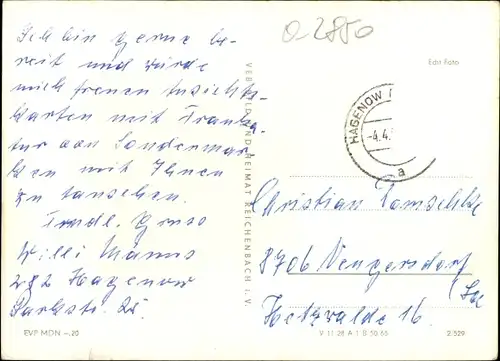 Ich bin gerne be-
reit und würde
mich freuen Ansichts-
karten mit Franka-
tur von Sondermar-
ken mit Ihnen
zu tauschen.
Frndl. Gruss
Willi Manns
282 Hagenow
Parkstr. 25.
EVP MDN –.20
VEB BILD UND HEIMAT REICHENBACH I. V.
0-2850
Edit Foto
HAGENOW
-4.4.
a
Christian
8706 Neugersdorf
16
V 11 28 A 1 B 50/66
2/529